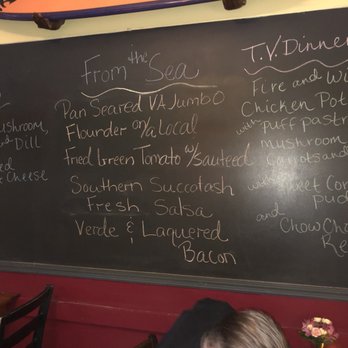 ushroom,
and Dill
ed
Cheese
From the Sea
Pan Seared VA Jumbo
Flounder on/a Local
Fried Green Tomato w/sauteed
Southern Succotash
Fresh Salsa
Verde & Laquered
Bacon
T.V. Dinner
Fire and Wi
Chicken Pot
with puff pastr
mushroom
Carrots and
with Sweet Cor
pud
and Chow Cho
Re